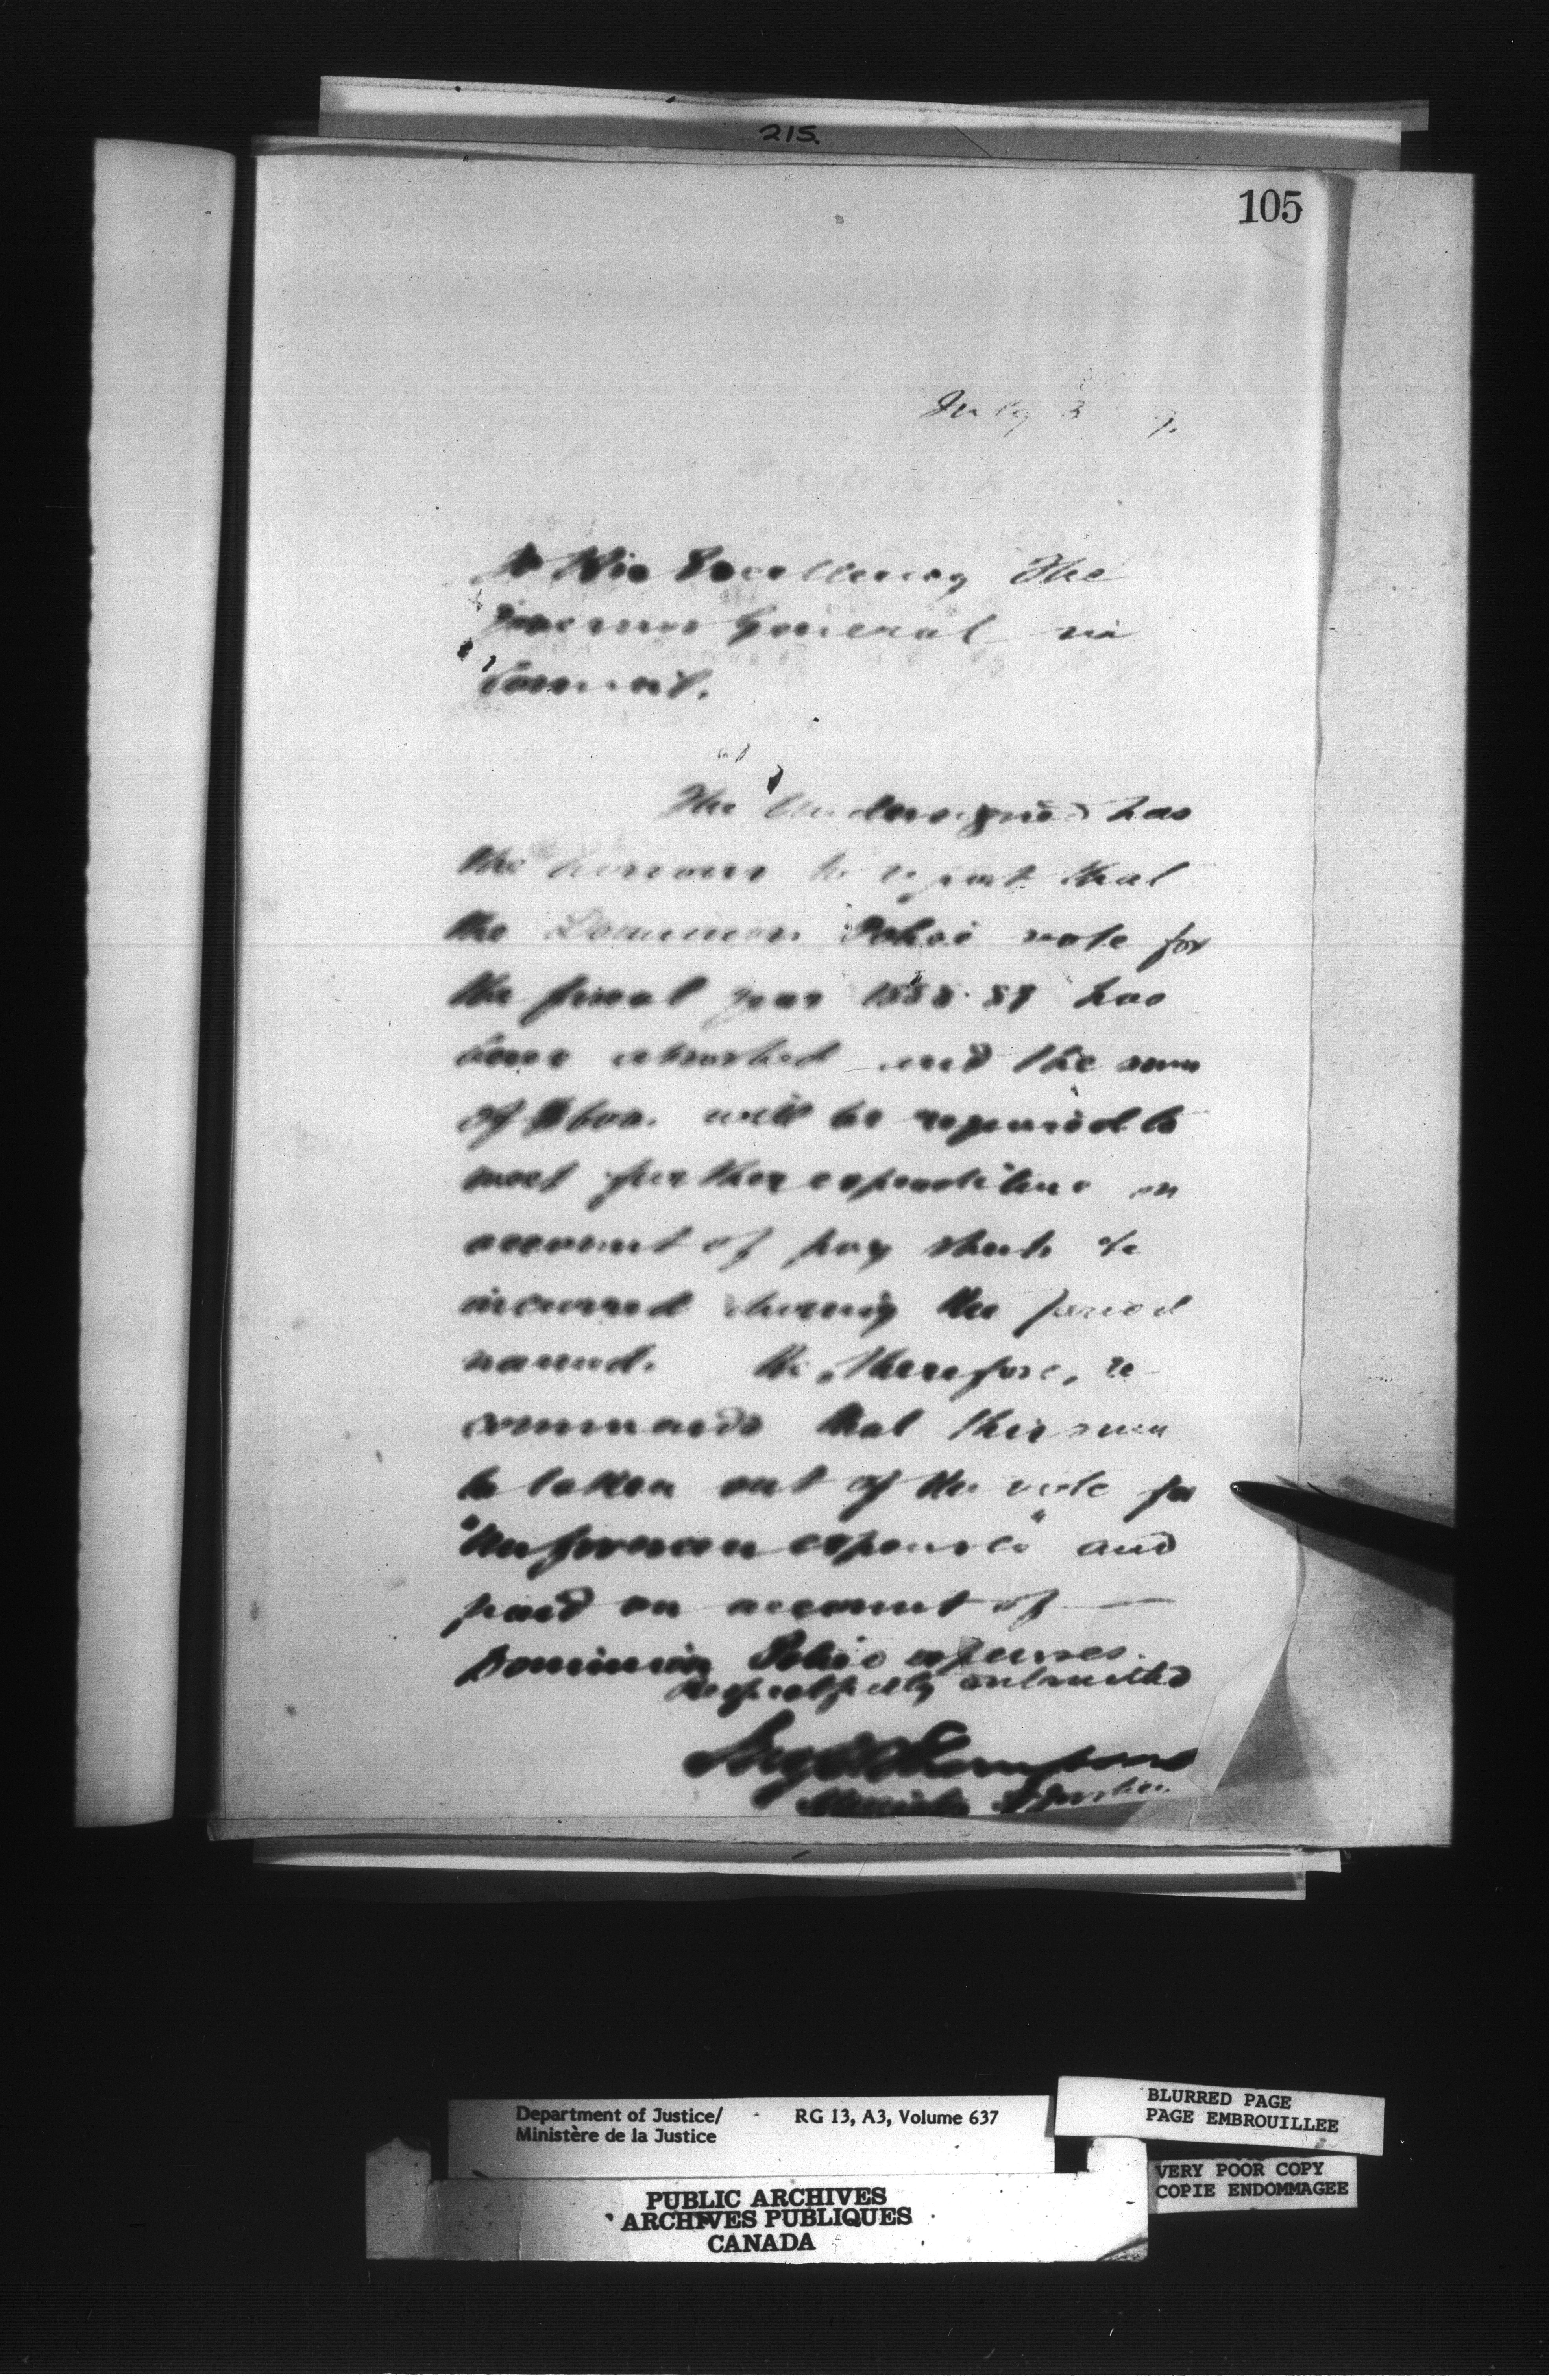 215.
105
July 3 9.
To His Excellency The
Governor General in
Council.
The Undersigned has
the honour to report that
the Dominion Police vote for
the fiscal year 1888-89 has
been exhausted and the sum
of $600. will be required to
meet further expenditure on
account of pay sheets &c
incurred during the period
named. He, therefore, re-
commends that this sum
be taken out of the vote for
"Unforeseen expenses" and
paid on account of —
Dominion Police expenses.
Respectfully submitted
Thompson
Minister of Justice.
Department of Justice/ RG 13, A3, Volume 637
Ministère de la Justice
BLURRED PAGE
PAGE EMBROUILLEE
VERY POOR COPY
COPIE ENDOMMAGEE
PUBLIC ARCHIVES
ARCHIVES PUBLIQUES
CANADA